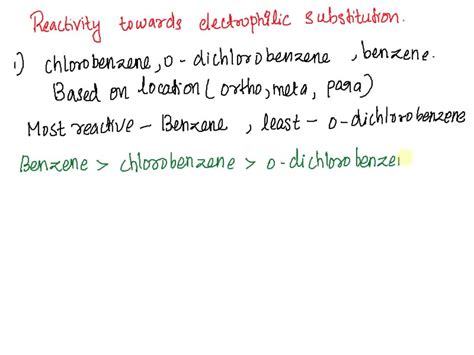 Reactivity towards electrophilic substitution.
i) chlorobenzene, o-dichlorobenzene, benzene.
Based on location (ortho, meta, para)
Most reactive - Benzene, least - o-dichlorobenzene
Benzene > chlorobenzene > o-dichlorobenze